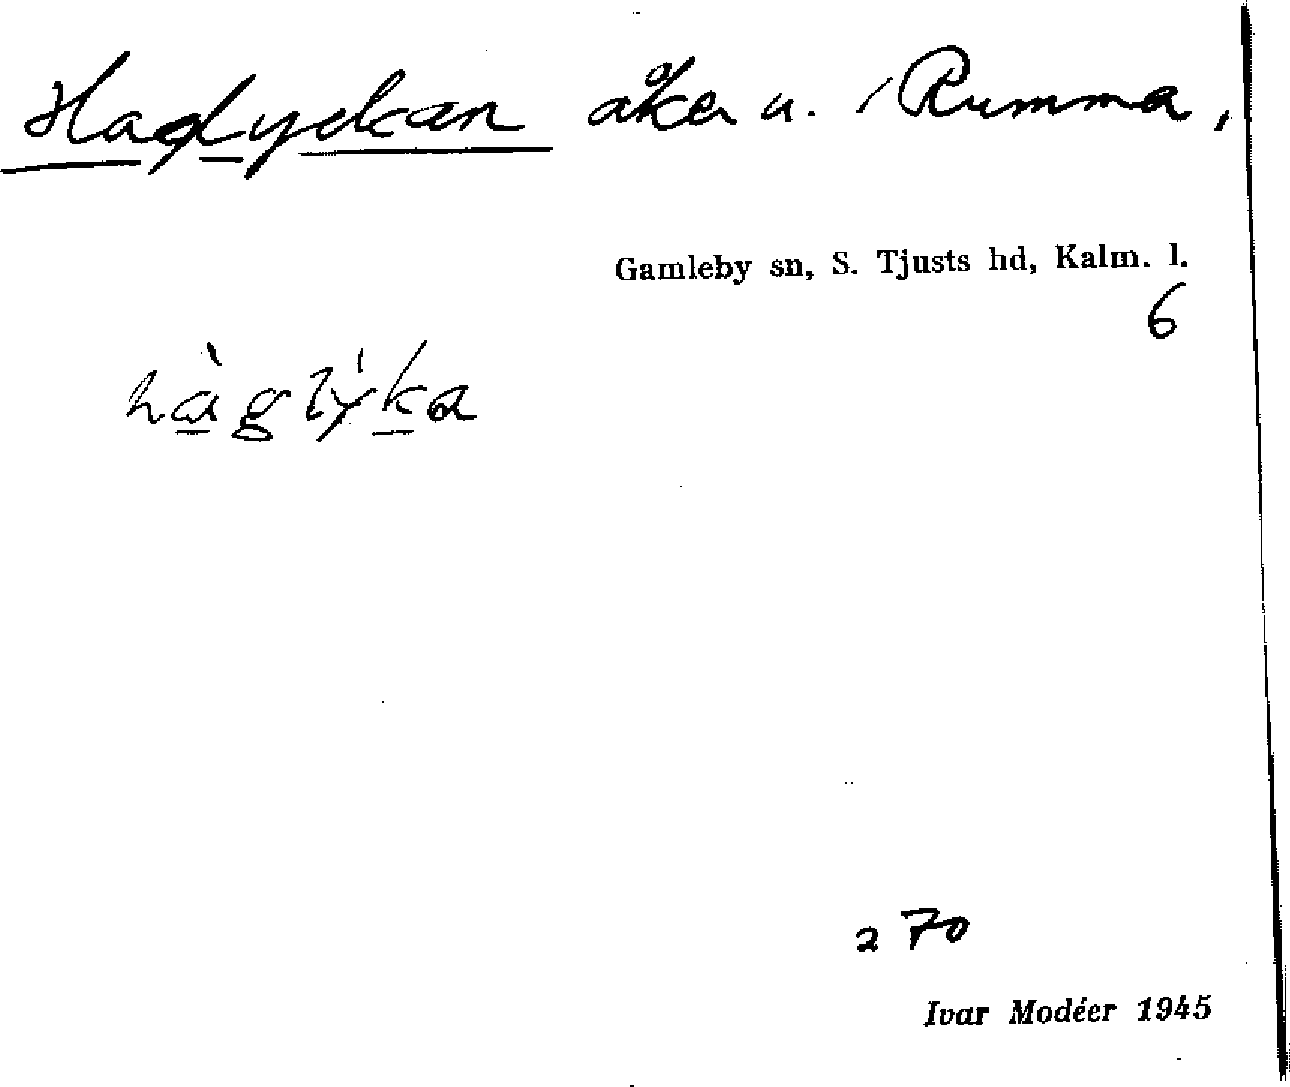 Haglyckan åker u. Rumma,
Gamleby sn, S. Tjusts hd, Kalm. l.
6
hàglýka
270
Ivar Modéer 1945